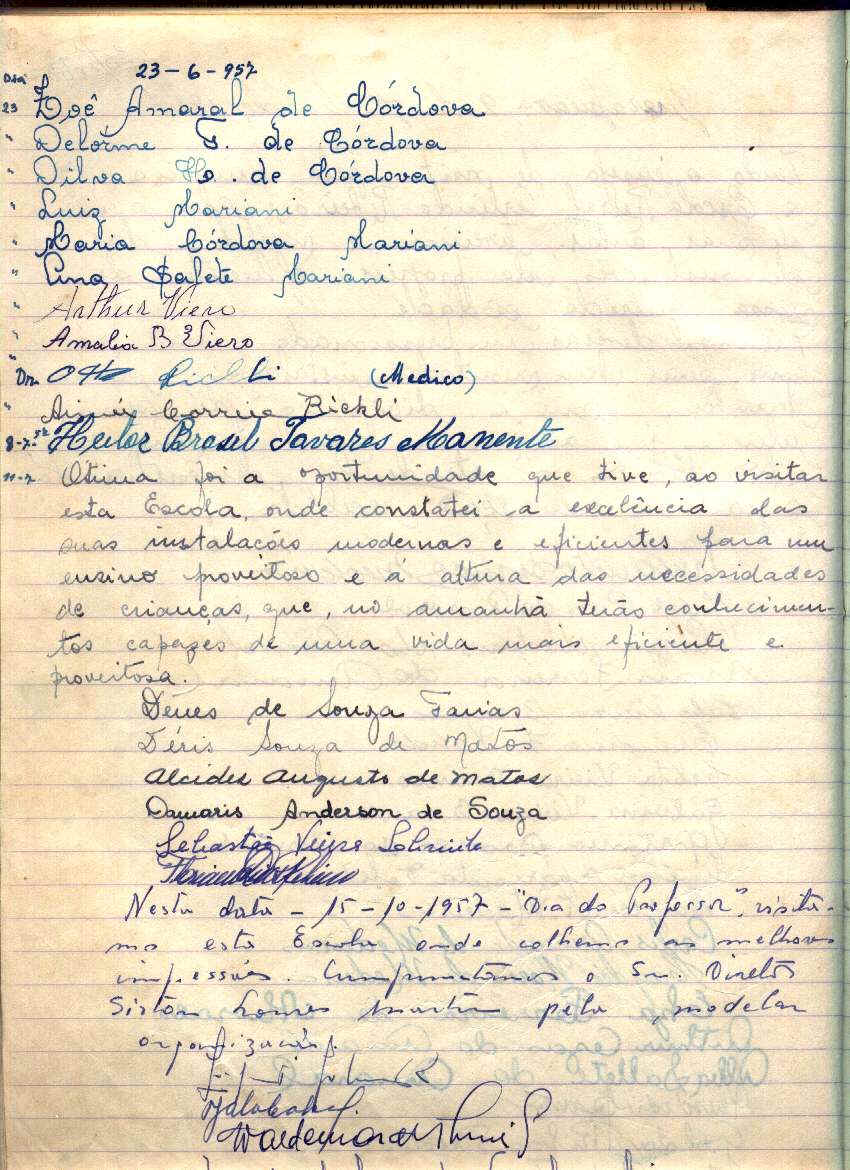 23-6-957
Dia
23 Zoê Amaral de Córdova
" Delorme T. de Córdova
" Dilva de Córdova
" Luiz Mariani
" Maria Córdova Mariani
" Ana Salete Mariani
" Arthur Viero
" Amalia B Viero
Dr. Otto Bickli (Medico)
" Correia Bickli
8-7-57 Heitor Brasil Tavares Manente
11-7 Otima foi a oportunidade que tive, ao visitar
esta Escola, onde constatei a excelência das
suas instalações modernas e eficientes para um
ensino proveitoso e á altura das necessidades
de crianças, que, no amanhã terão conhecimen-
tos capazes de uma vida mais eficiente e
proveitosa.
Dênes de Souza Farias
Déris Souza de Matos
Alcides Augusto de Matos
Damaris Anderson de Souza
Sebastião Vieira Sobrinho
Nesta data - 15-10-1957 - "Dia do Professor", visita-
mo esta Escola onde colhemos as melhores
impressões. Cumprimentamos o Snr. Diretor
pela modelar
organização.